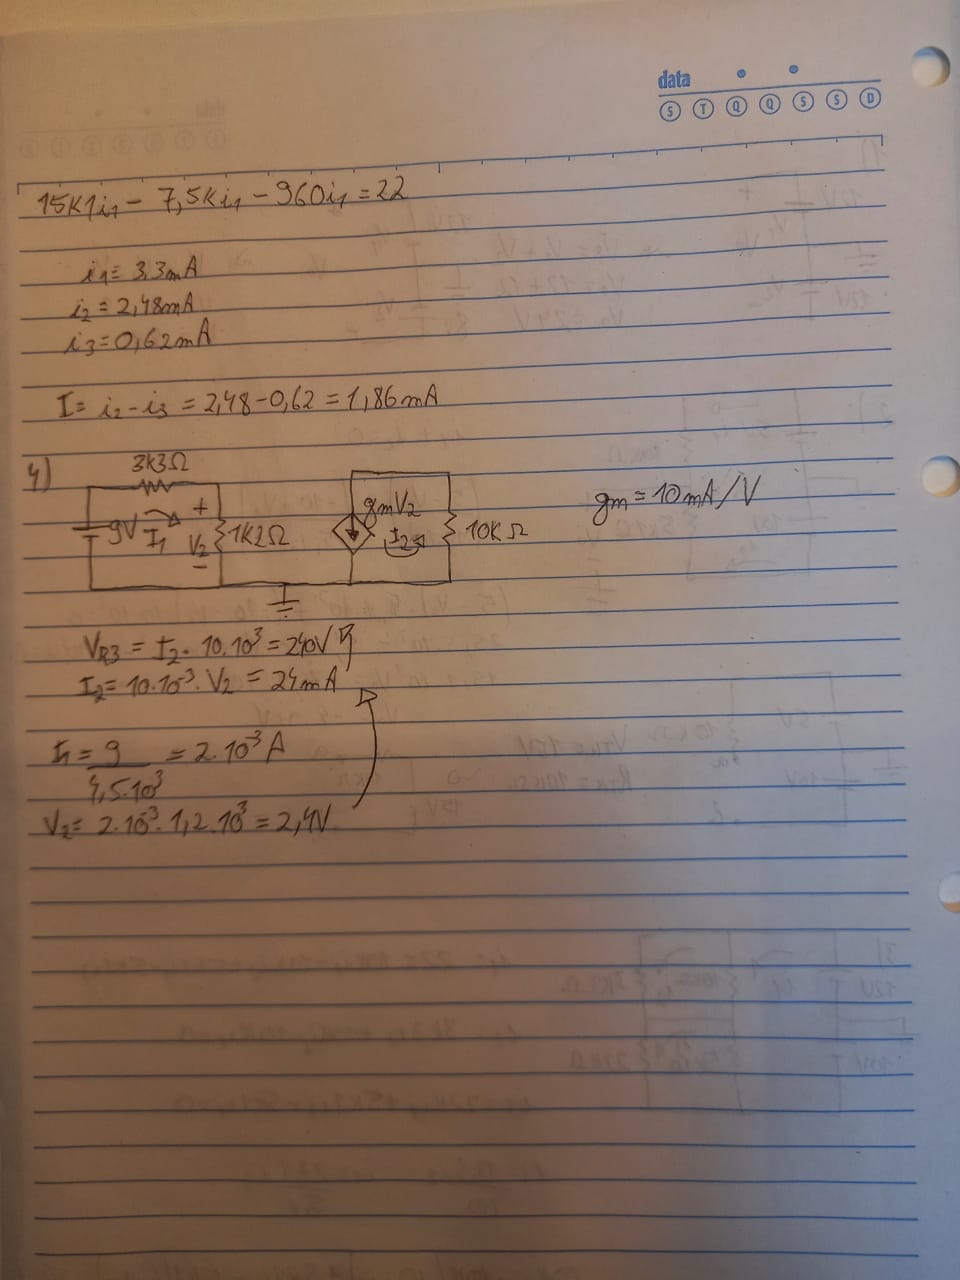 data
S T Q Q S S D
15K1i1 - 7,5Ki1 - 960i1 = 22
i1 = 3,3mA
i2 = 2,48mA
i3 = 0,62mA
I = i2 - i3 = 2,48 - 0,62 = 1,86mA
4)
3K3Ω
9V I1 + V2 - 1K2Ω
gmV2 I2 10KΩ
gm = 10mA/V
VR3 = I2 . 10.10³ = 240V
I2 = 10.10⁻³ . V2 = 24mA
I1 = 9 / 4,5.10³ = 2.10⁻³ A
V2 = 2.10⁻³ . 1,2.10³ = 2,4V